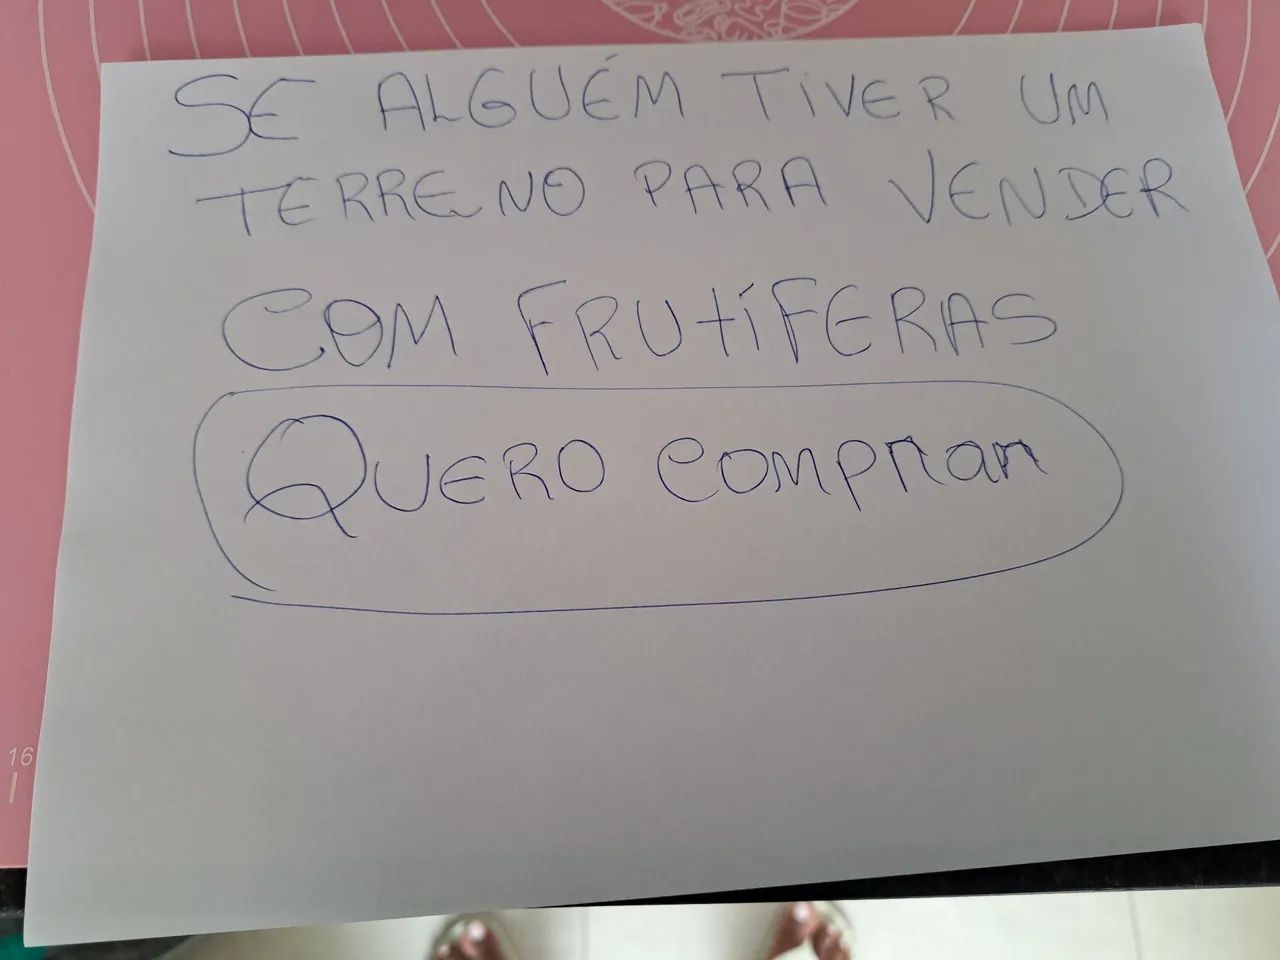 SE ALGUÉM TIVER UM
TERRENO PARA VENDER
COM FRUTÍFERAS
QUERO comprar
16